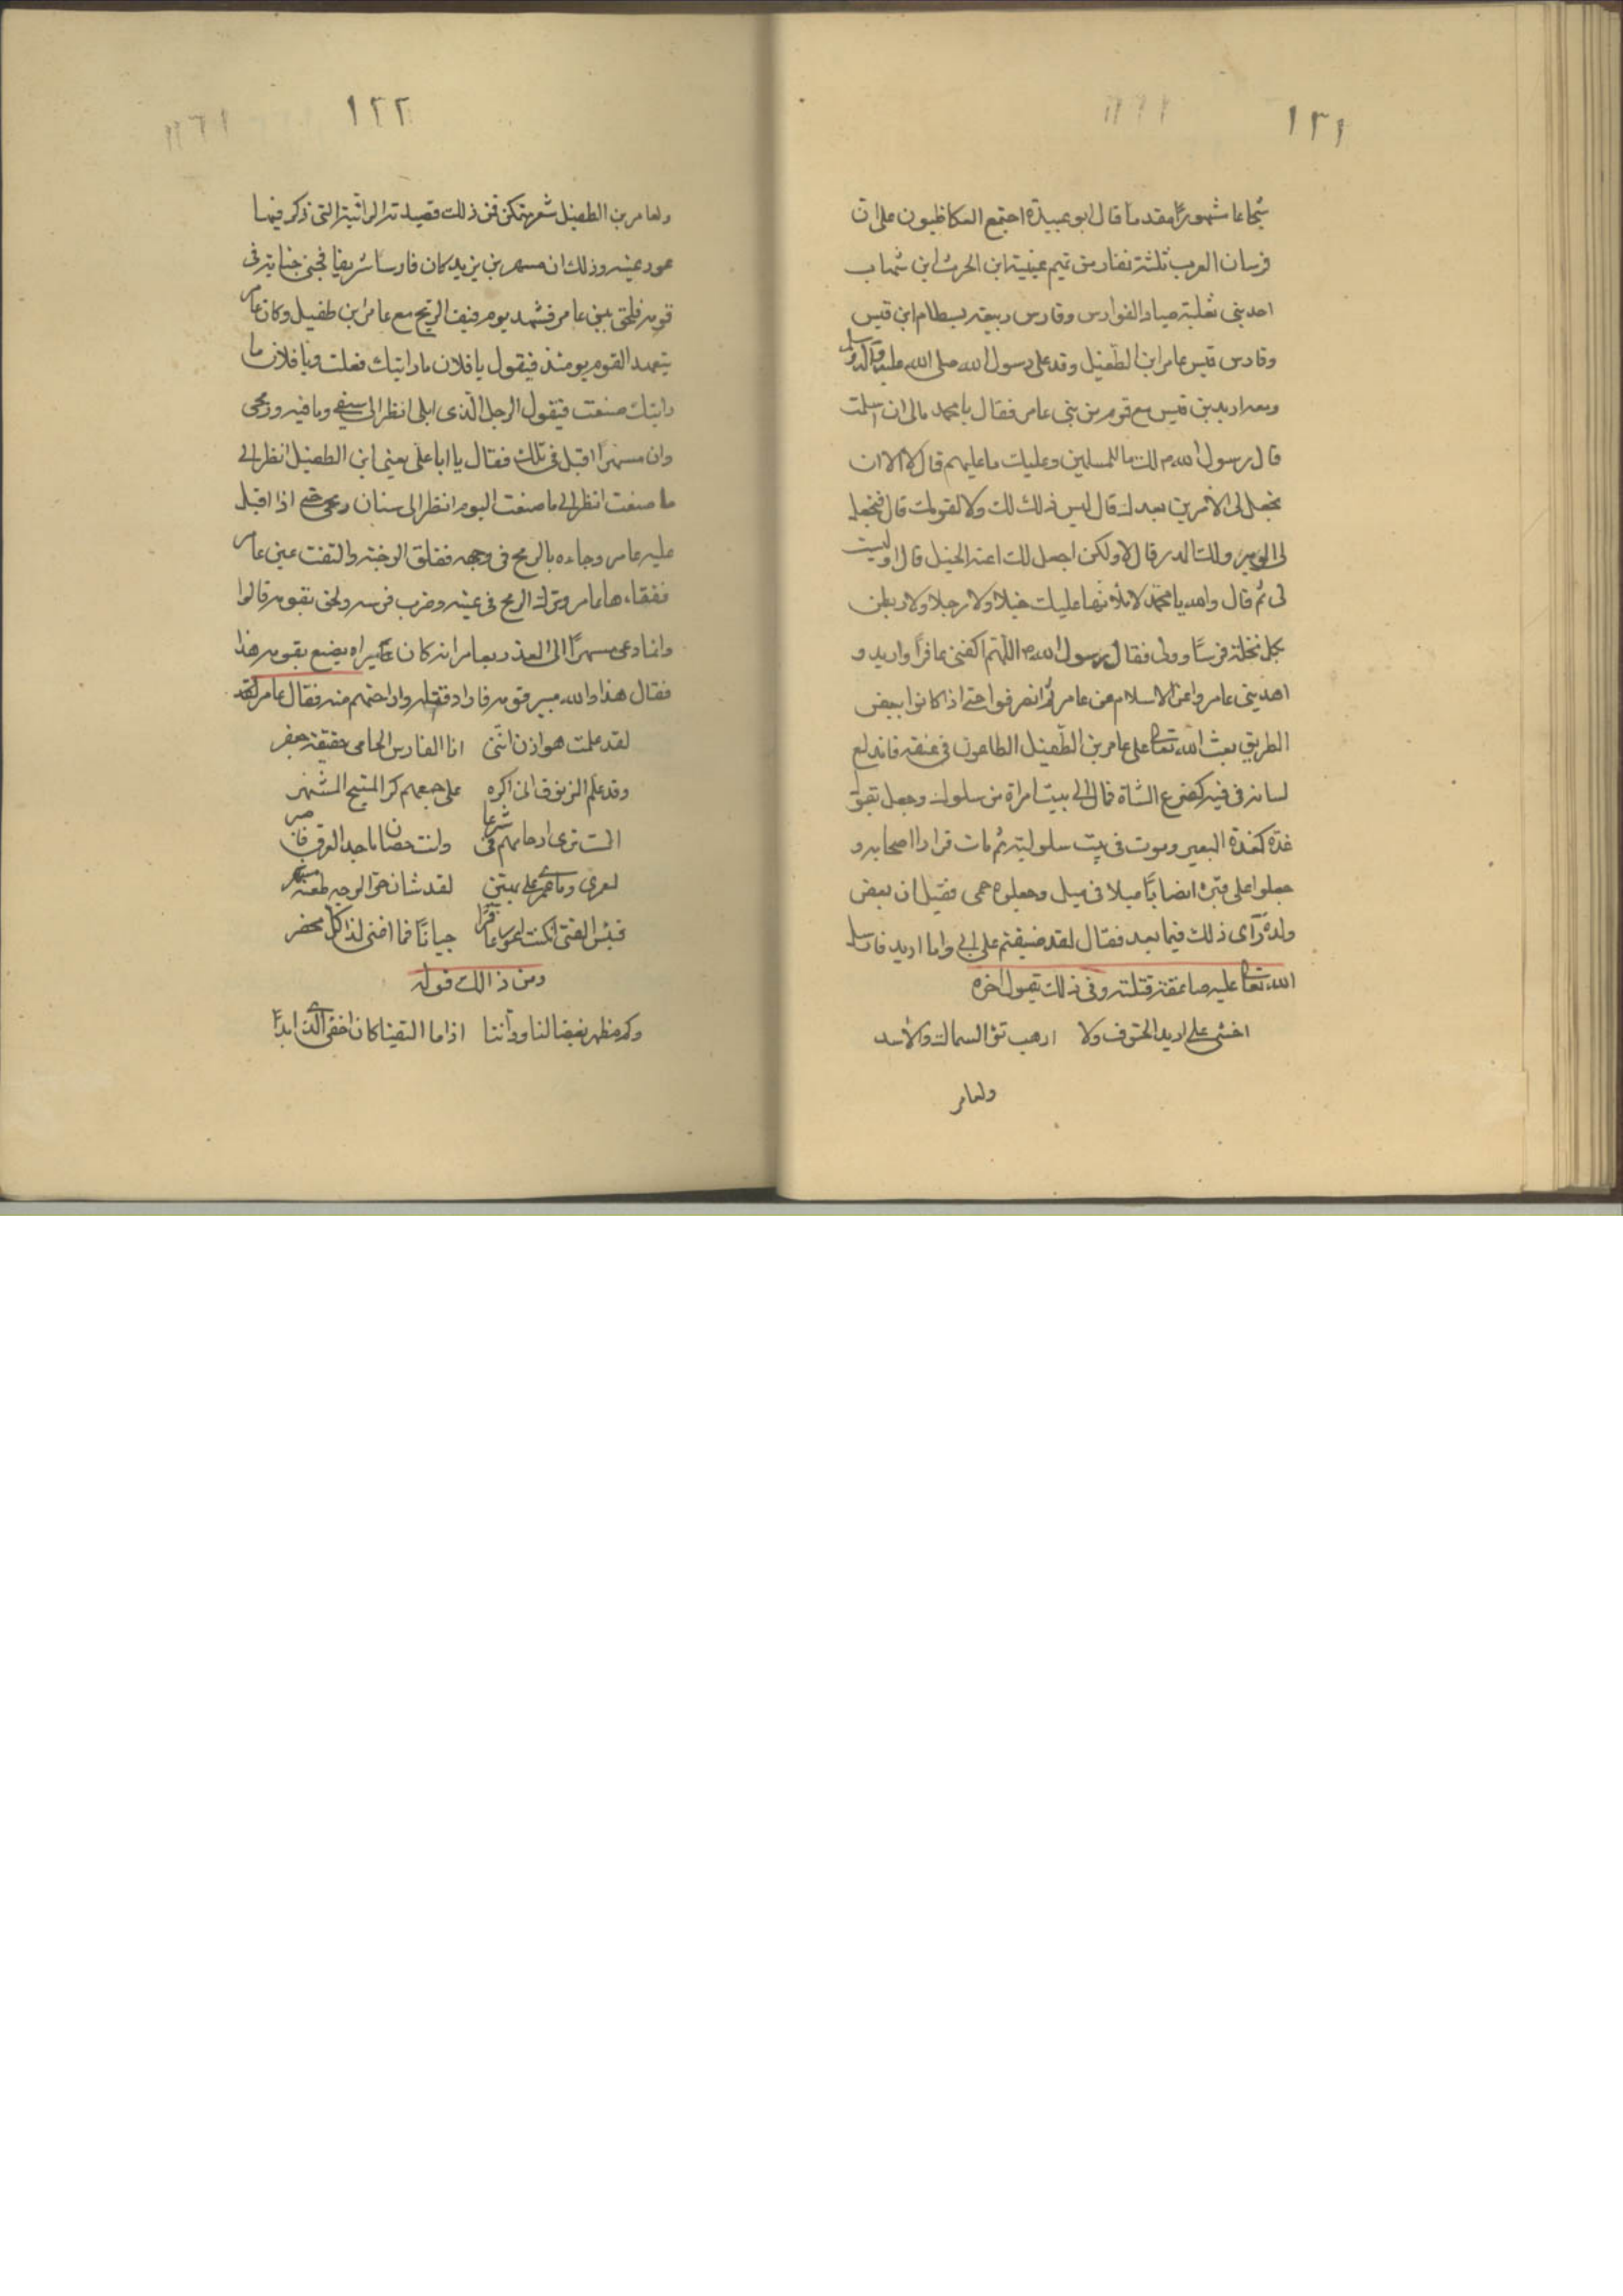 ١٣١
شجاعا شهورًا مقدما قال ابو عبيدة اجتمع العكاظيون على ان
فرسان العرب ثلثة نفار من تميم عيينة ابن الحرث ابن شهاب
احد بنى ثعلبة صياد الفوارس وفارس ربيعة بسطام ابن قيس
وفارس قيس عامر ابن الطفيل وقد على رسول الله صلى الله عليه وآله وسلم
ومعه اربد بن قيس مع قوم من بنى عامر فقال يا محمد مالى ان اسلمت
قال رسول الله م لك ما للمسلمين وعليك ما عليهم قال لا الا ان
تجعل لى الأمر من بعدك قال ليس ذلك لك ولا لقومك قال فتجعل
لى الوبر ولك المدر قال لا ولكن اجعل لك اعنة الخيل قال اوليست
لى ثم قال والله يا محمد لاملأنها عليك خيلا ولا رجلا ولاربطن
بكل نخلة فرسًا وولى فقال رسول الله م اللهم اكفنى عافرًا واربد و
اهد بنى عامر واغن الاسلام عن عامر ثم انصرفوا حتى اذا كانوا ببعض
الطريق بعث الله تعالى على عامر بن الطفيل الطاعون فى عنقه فاندلع
لسانه فى فيه كضرع الشاة فمال الى بيت امراة من سلول وجعل يقول
غدة كغدة البعير وموت فى بيت سلولية ثم مات فرارا اصحابه و
جعلوا على قبره انصابًا ميلا فى ميل وجعلوه حمى فقيل ان بعض
ولده رآى ذلك فيما بعد فقال لقد ضيقتم على ابى واما اربد فارسل
الله تعالى عليه صاعقة قتلته وفى ذلك يقول اخوه
اخشى على اربد الحتوف ولا ارهب نؤ السماك والأسد
ولعامر
١٢٢
ولعامر بن الطفيل شعر فمن ذلك قصيدته الرائية التى ذكر فيها
عور عينه وذلك ان مسهر بن يزيد كان فارسا شريفا فجنى جناية فى
قومه فلحق ببنى عامر فشهد يوم فيف الريح مع عامر ابن طفيل وكان عامر
يتعهد القوم يومئذ فيقول يا فلان ما رايتك فعلت ويا فلان ما
رايتك صنعت فيقول الرجل الذى ابلى انظر الى سيفى وما فيه ورمحى
وان مسهرًا اقبل فى تلك فقال يا ابا على يعنى ابن الطفيل انظر الى
ما صنعت انظر الى ما صنعت اليوم انظر الى سنان رمحى حتى اذا اقبل
عليه عامر وجاءه بالرمح فى وجهه ففلق الوجنة والتفت عين عامر
ففقاءها وترك الرمح فى عينه وضرب فرسه ولحق بقومه قالوا
وانما دعى مسهرًا الى الغدر بعامر انه كان يراه يصنع بقومه هذا
فقال هذا والله مبير قومه فاراد قتله واراحتهم منه فقال عامر لقد
لقد علمت هوازن اننى انا الفارس الحامى حقيقة جعفر
وقد علم المزنوق انى اكره على جمعهم كر المنيح المشهر
الست ترى ارماحهم فى شرعا وانت حصان ماجد العرق فاصبر
لعمرى وما عمرى على بهين لقد شان حر الوجه طعنة مسهر
فبئس الفتى ان كنت اعور عاقرًا جبانًا فما اغنى لدا كل محضر
ومن ذالك قوله
وكم مظهر بغضا لنا ود اننا اذا ما التقينا كان اخفى الذى ابدا